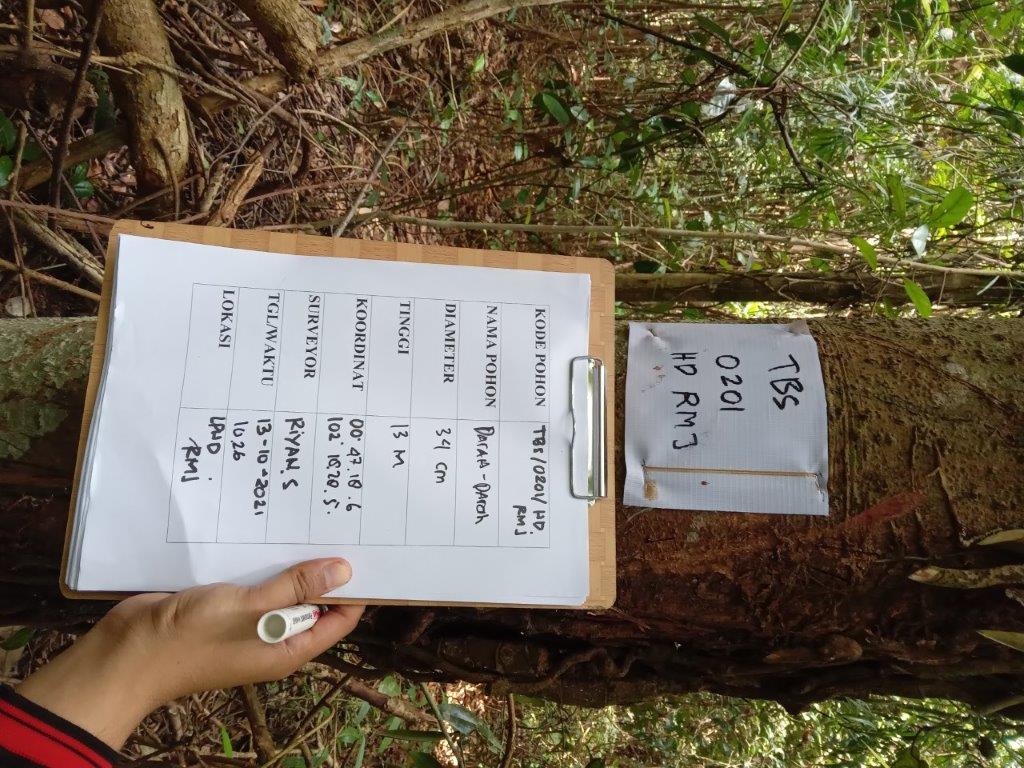 TBS
0201
HD RMJ
KODE POHON TBS/0201/HD.
RMJ
NAMA POHON Darah-Darah
DIAMETER 34 cm
TINGGI 13 M
KOORDINAT 00° 47.18.6
102° 18.28.5.
SURVEYOR RIYAN.S
TGL/WAKTU 13-10-2021
1026
LOKASI LPHD.
RMJ